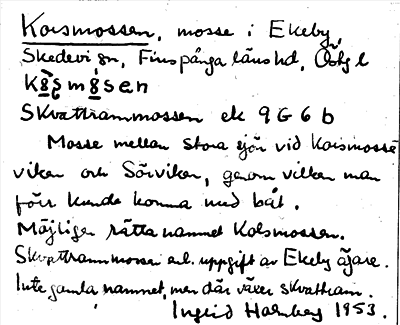 Korsmossen, mosse i Ekeby,
Skedevi sn, Finspånga läns hd, Östg l
Skvattrammossen ek 9 G 6 b
Mosse mellan stora sjön vid Korsmosse
viken och Sörviken, genom vilken man
förr kunde komma med båt.
Möjligen rätta namnet Kolsmossen.
Skvattrammossen enl. uppgift av Ekeby ägare.
Inte gamla namnet, men där växer skvattram.
Ingrid Holmberg 1953.